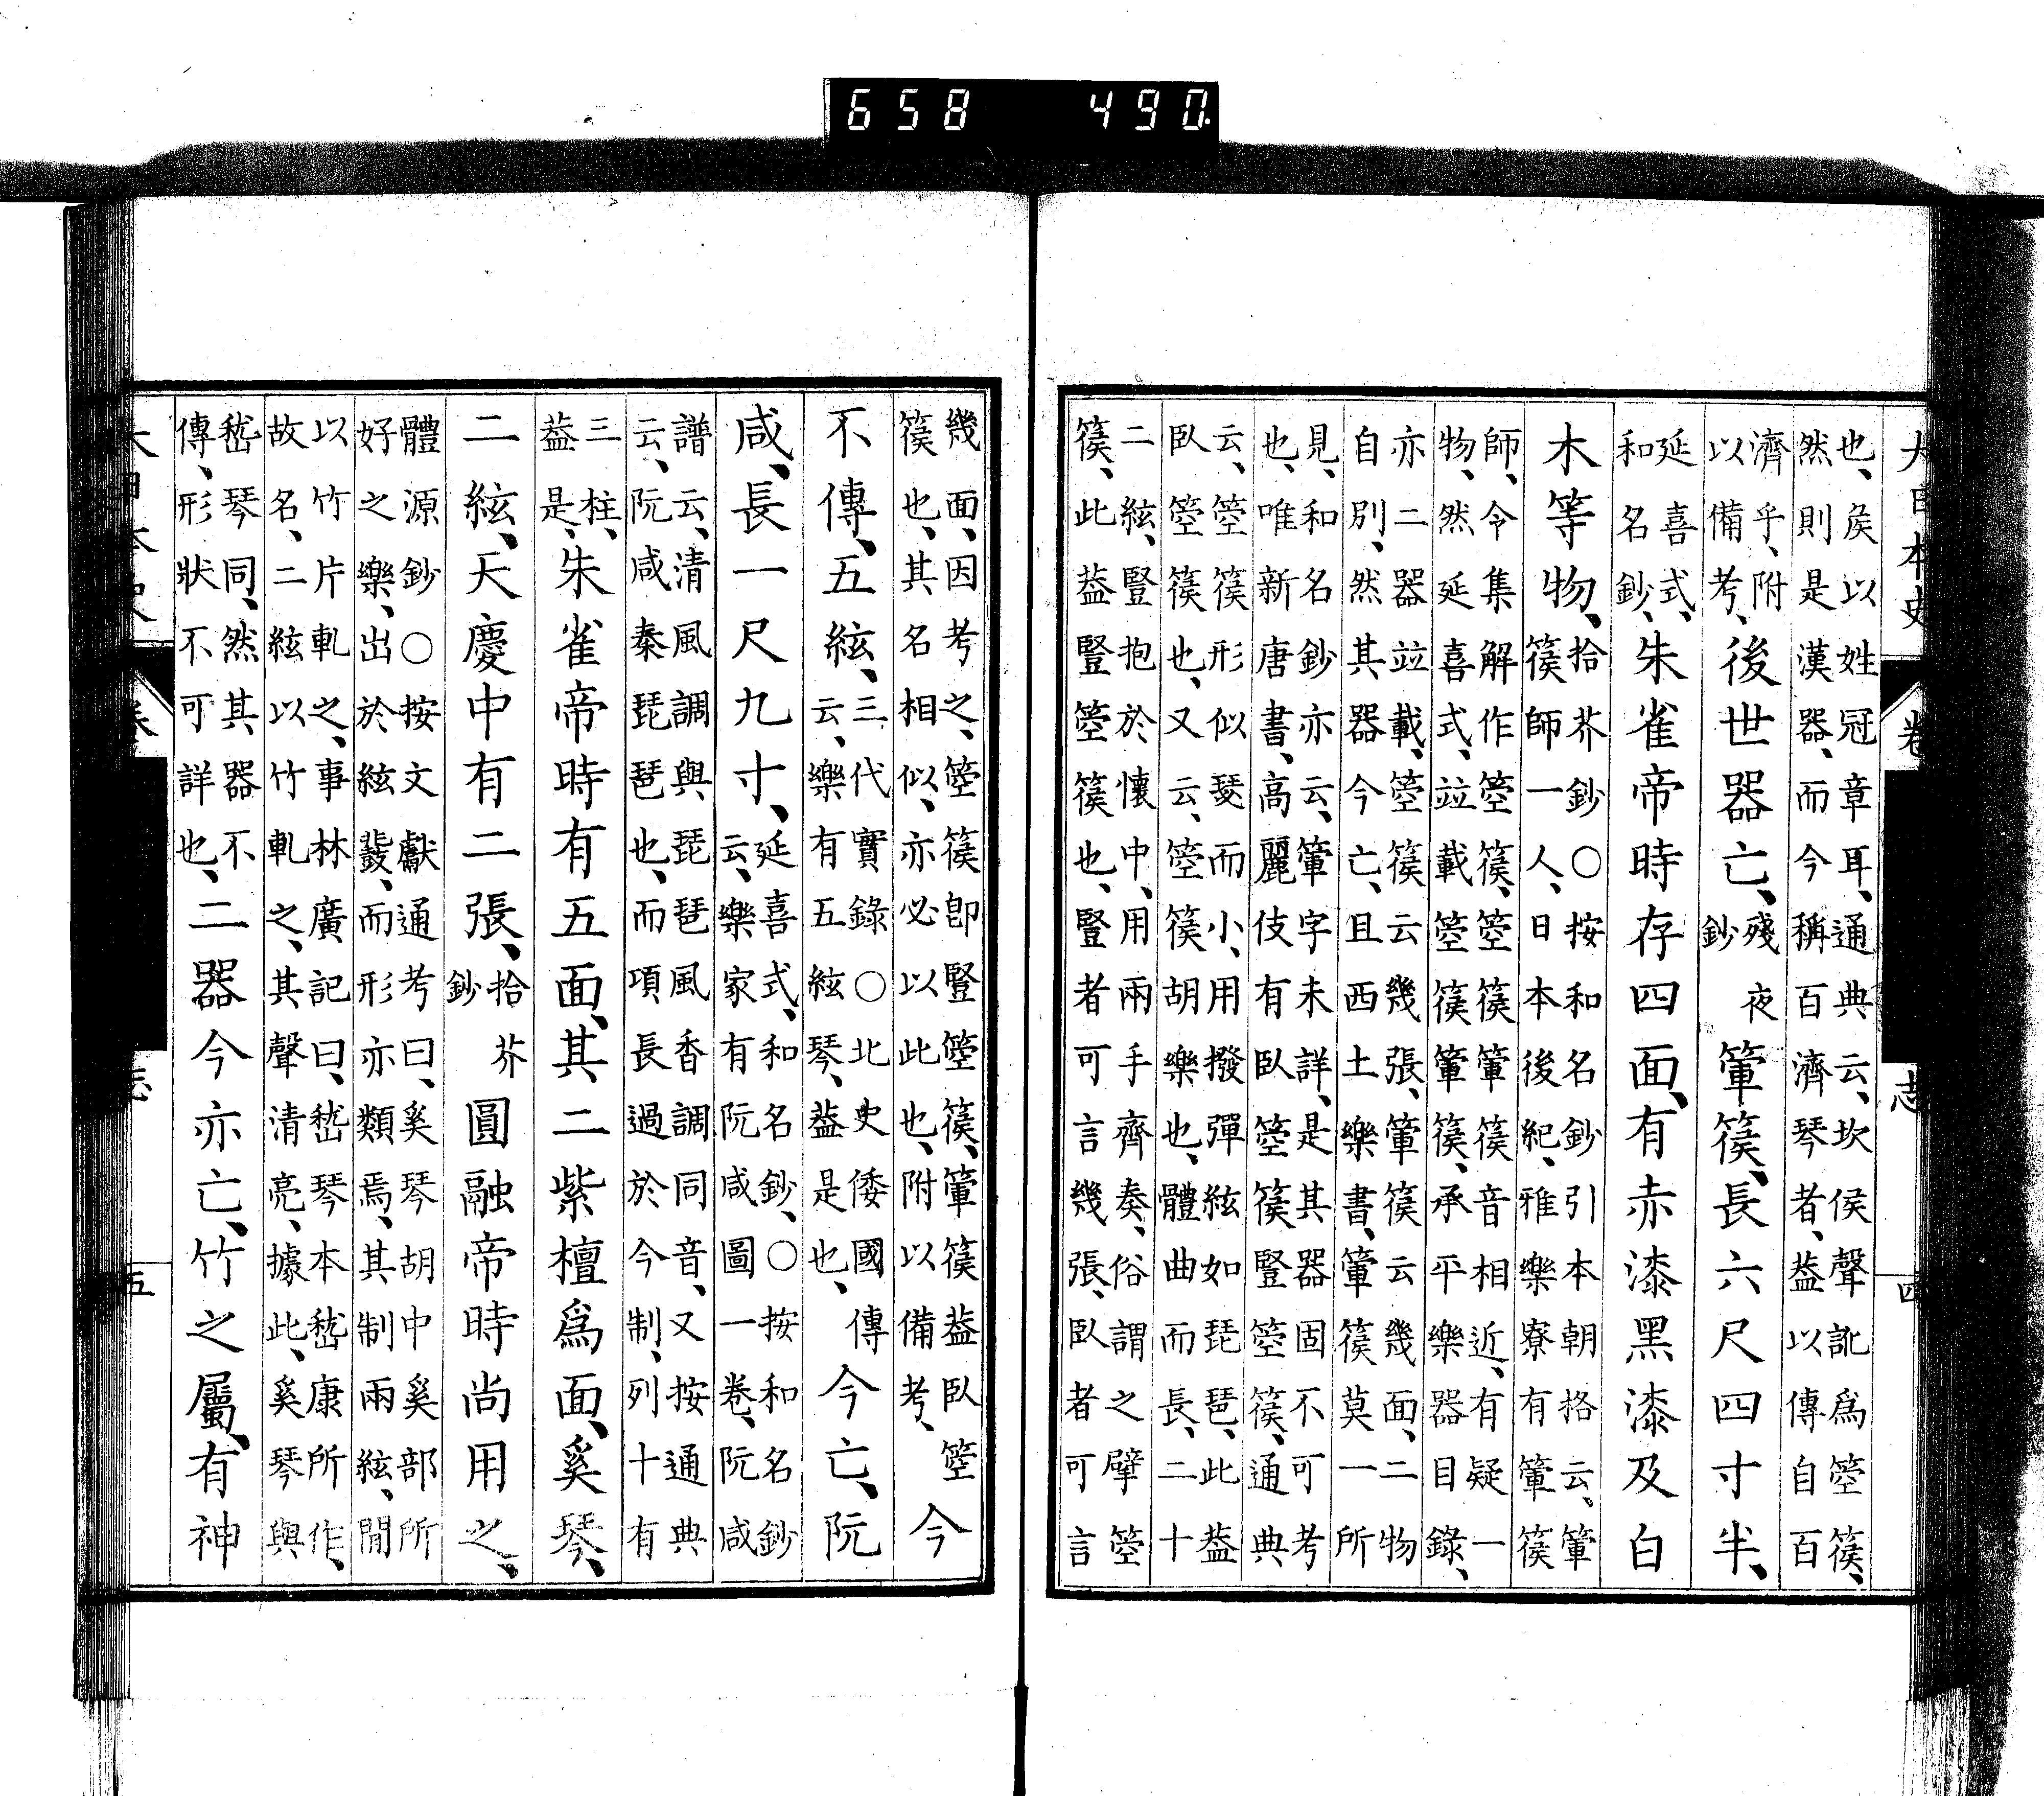 大日本史 卷 志 四
也、矦以姓冠章耳、通典云、坎侯聲訛爲箜篌、
然則是漢器、而今稱百濟琴者、葢以傳自百
濟乎、附以備考、後世器亡、殘夜鈔箽篌、長六尺四寸半、
延喜式、和名鈔、朱雀帝時存四面、有赤漆黑漆及白
木等物、拾芥鈔〇按和名鈔引本朝格云、箽篌師一人、日本後紀、雅樂寮有箽篌
師、令集解作箜篌、箜篌箽篌音相近、有疑一
物、然延喜式、竝載箜篌箽篌、承平樂器目錄、
亦二器竝載、箜篌云幾張、箽篌云幾面、二物
自別、然其器今亡、且西土樂書、箽篌莫一所
見、和名鈔亦云、箽字未詳、是其器固不可考
也、唯新唐書、高麗伎有臥箜篌豎箜篌、通典
云、箜篌形似瑟而小、用撥彈絃如琵琶、此葢
臥箜篌也、又云、箜篌胡樂也、體曲而長、二十
二絃、豎抱於懷中、用兩手齊奏、俗謂之擘箜
篌、此葢豎箜篌也、豎者可言幾張、臥者可言
幾面、因考之、箜篌卽豎箜篌、箽篌葢臥箜
篌也、其名相似、亦必以此也、附以備考、今
不傳、五絃、三代實錄〇北史倭國傳云、樂有五絃琴、葢是也、今亡、阮
咸、長一尺九寸、延喜式、和名鈔、〇按和名鈔云、樂家有阮咸圖一卷、阮咸
譜云、清風調與琵琶風香調同音、又按通典
云、阮咸秦琵琶也、而項長過於今制、列十有
三柱、葢是、朱雀帝時有五面、其二紫檀爲面、奚琴、
二絃、天慶中有二張、拾芥鈔圓融帝時尚用之、
體源鈔〇按文獻通考曰、奚琴胡中奚部所
好之樂、出於絃鼗、而形亦類焉、其制兩絃、閒
以竹片軋之、事林廣記曰、嵆琴本嵆康所作、
故名、二絃以竹軋之、其聲清亮、據此、奚琴與
嵆琴同、然其器不傳、形狀不可詳也、二器今亦亡、竹之屬、有神
大日本史 卷 志 五
658 490